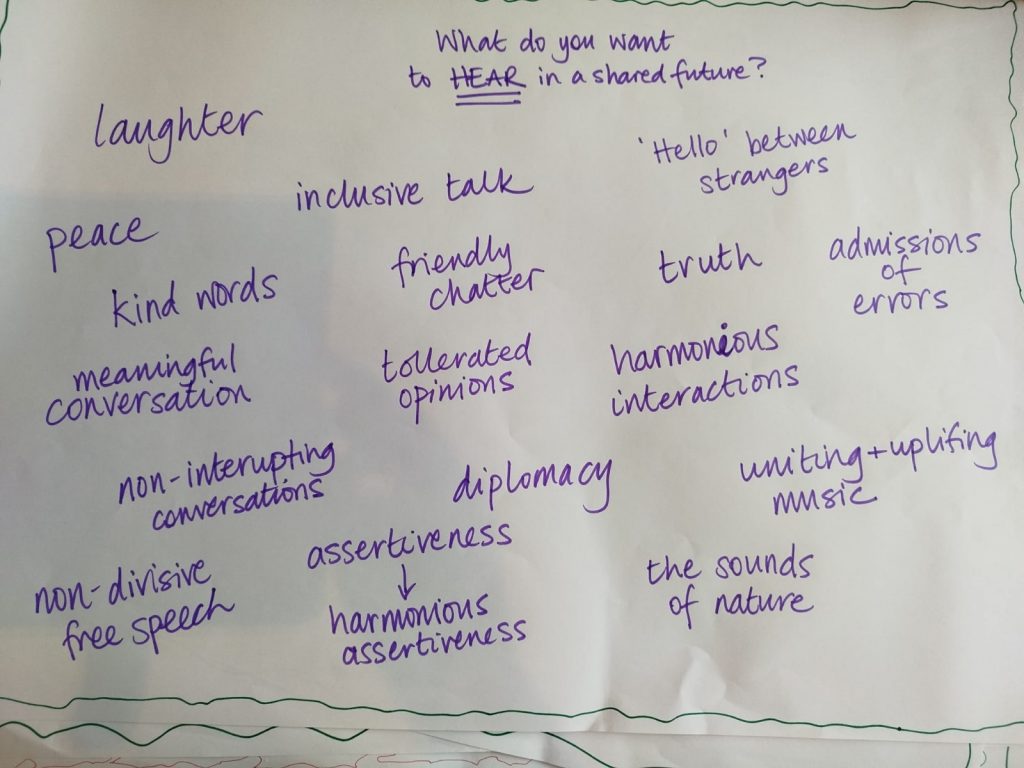 What do you want
to HEAR in a shared future?
laughter
'Hello' between
strangers
inclusive talk
peace
friendly
chatter
truth
admissions
of
errors
kind words
meaningful
conversation
tollerated
opinions
harmonious
interactions
non-interupting
conversations
diplomacy
uniting + uplifing
music
assertiveness
harmonious
assertiveness
non-divisive
free speech
the sounds
of nature